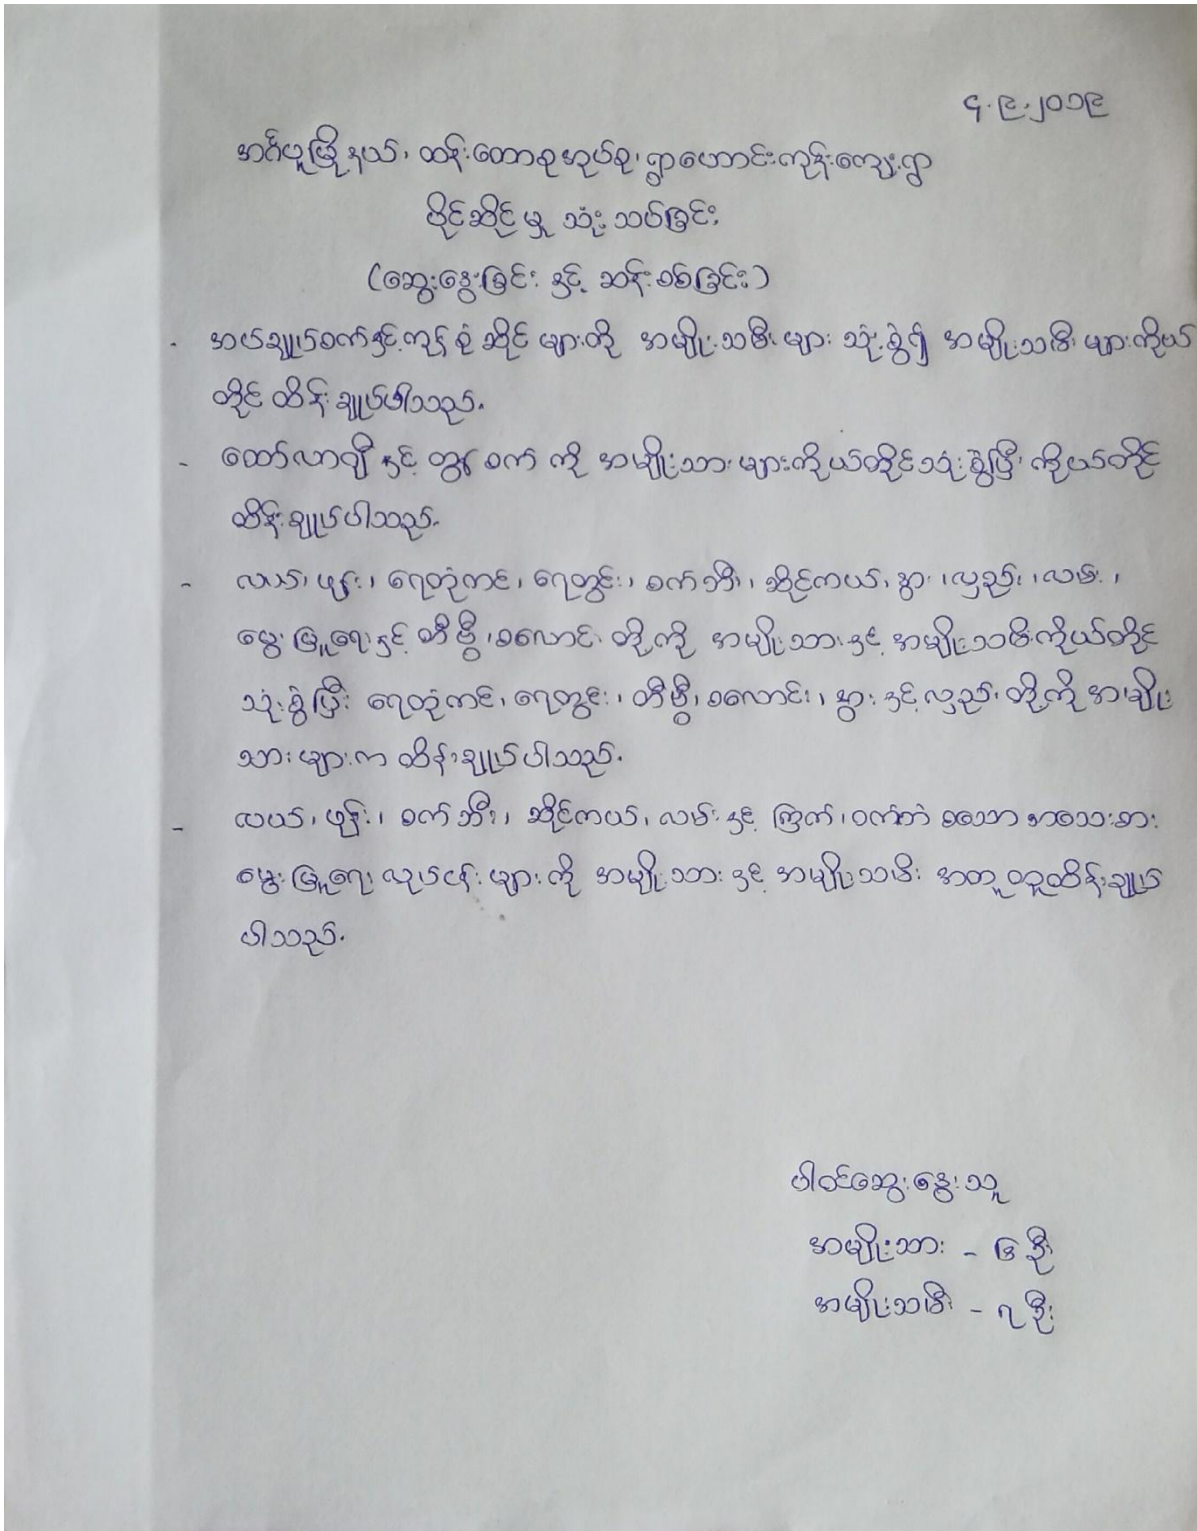 ၄.၉.၂၀၁၉
အင်္ဂပူမြို့နယ်၊ ထန်းတောစုအုပ်စု၊ ရွာဟောင်းကုန်းကျေးရွာ
ပိုင်ဆိုင်မှု သုံးသပ်ခြင်း
(ဆွေးနွေးခြင်း နှင့် ဆန်းစစ်ခြင်း)
- အပ်ချုပ်စက်နှင့်ကုန်စုံဆိုင်များကို အမျိုးသမီးများ သုံးစွဲ၍ အမျိုးသမီးများကိုယ်
တိုင် ထိန်းချုပ်ပါသည်။
- ထော်လာဂျီနှင့် တွန်းစက် ကို အမျိုးသားများကိုယ်တိုင်သုံးစွဲပြီး ကိုယ်တိုင်
ထိန်းချုပ်ပါသည်။
- လယ်၊ ဖုန်း၊ ရေတုံကင်၊ ရေတွင်း၊ စက်ဘီး၊ ဆိုင်ကယ်၊ နွား၊ လှည်း၊ လမ်း၊
မွေးမြူရေးနှင့် တီဗွီ၊ စလောင်း တို့ကို အမျိုးသားနှင့် အမျိုးသမီးကိုယ်တိုင်
သုံးစွဲပြီး ရေတုံကင်၊ ရေတွင်း၊ တီဗွီ၊ စလောင်း၊ နွားနှင့်လှည်း တို့ကို အမျိုး
သားများက ထိန်းချုပ်ပါသည်။
- လယ်၊ ဖုန်း၊ စက်ဘီး၊ ဆိုင်ကယ်၊ လမ်းနှင့် ကြက်၊ ဝက်ဘဲ စသော အသေးစား
မွေးမြူရေးလုပ်ငန်းများကို အမျိုးသားနှင့် အမျိုးသမီး အတူတူထိန်းချုပ်
ပါသည်။
ပါဝင်ဆွေးနွေးသူ
အမျိုးသား - ၆ ဦး
အမျိုးသမီး - ၇ ဦး